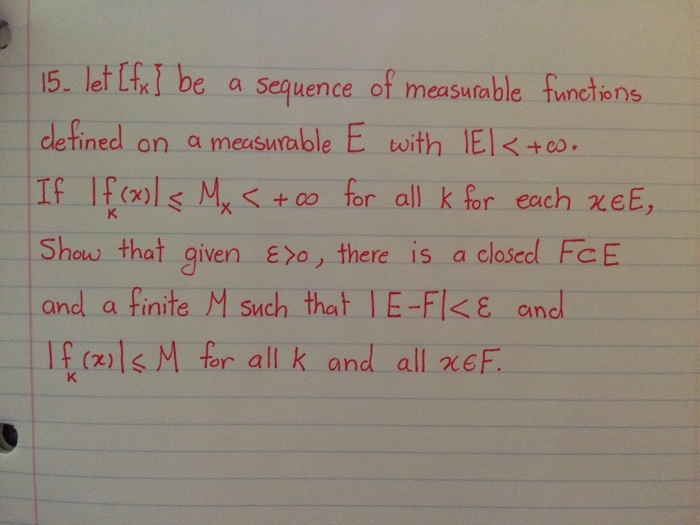 15. let [fₖ] be a sequence of measurable functions
defined on a measurable E with |E| < +∞.
If |fₖ(x)| ≤ Mₓ < +∞ for all k for each x∈E,
Show that given ε>0, there is a closed F⊂E
and a finite M such that |E-F|<ε and
|fₖ(x)| ≤ M for all k and all x∈F.